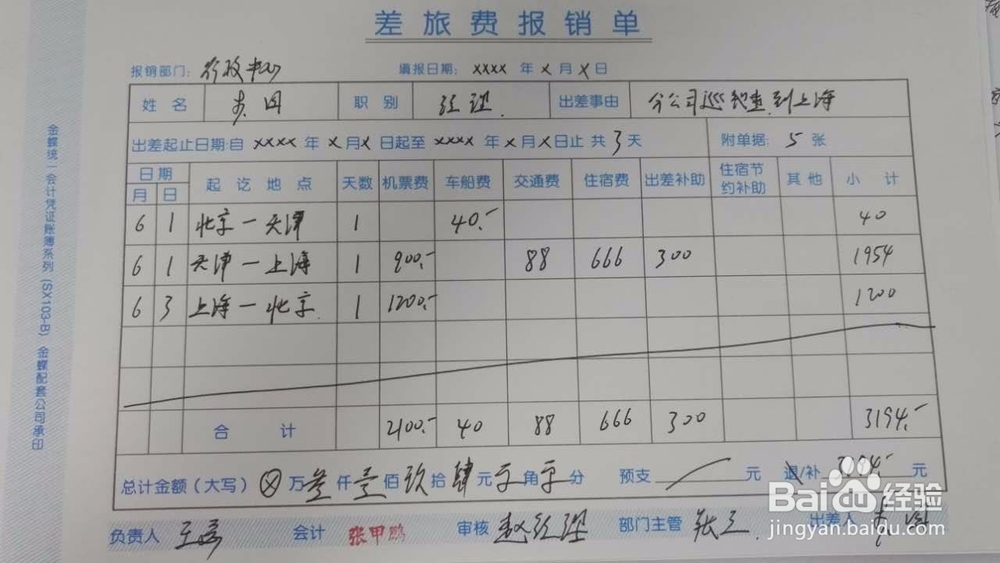 差旅费报销单
报销部门：行政中心 填报日期：xxxx 年 x 月 x 日
姓名 职别 经理 出差事由 分公司巡检查到上海
出差起止日期：自 xxxx 年 x 月 x 日起至 xxxx 年 x 月 x 日止 共 3 天 附单据：5 张
日期 起讫地点 天数 机票费 车船费 交通费 住宿费 出差补助 住宿节约补助 其他 小计
月 日
6 1 北京－天津 1 40.- 40
6 1 天津－上海 1 900.- 88 666 300 1954
6 3 上海－北京 1 1200.- 1200
合计 2100.- 40 88 666 300 3194.-
总计金额（大写） ⊗ 万 叁 仟 壹 佰 玖 拾 肆 元 零 角 零 分 预支 元 退/补 元
负责人 会计 张甲鹏 审核 赵经理 部门主管 张三 出差人
金蝶统一会计凭证账簿系列（SX103-B） 金蝶配套公司承印
Baidu经验
jingyan.baidu.com